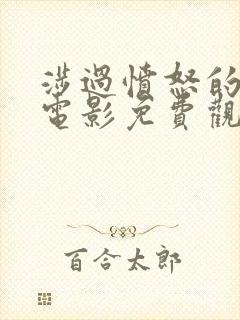 涉過憤怒的
電影免費觀
百合太郎